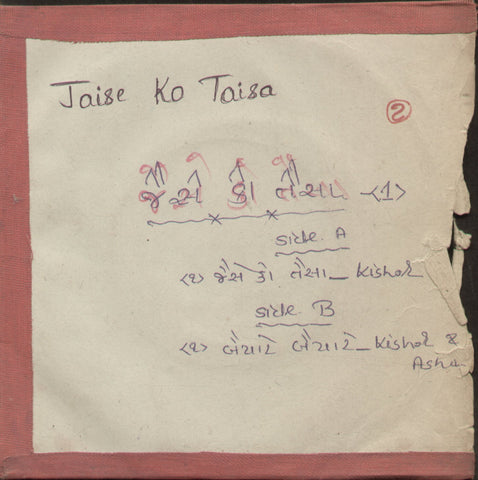 Jaise Ko Taisa
જૈસે કો તૈસા <1>
Side A
<૧> જૈસે કો તૈસા - Kishor
Side B
- Kishor &
Asha